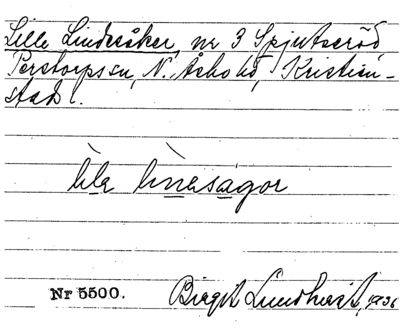 Lille Lindesåker, nr 3 Spjutseröd
Perstorps sn, N. Åsbo hd, Kristian-
stads l.
lìle lìnesågor
Nr 5500.
Birgit Lundqvist, 1936